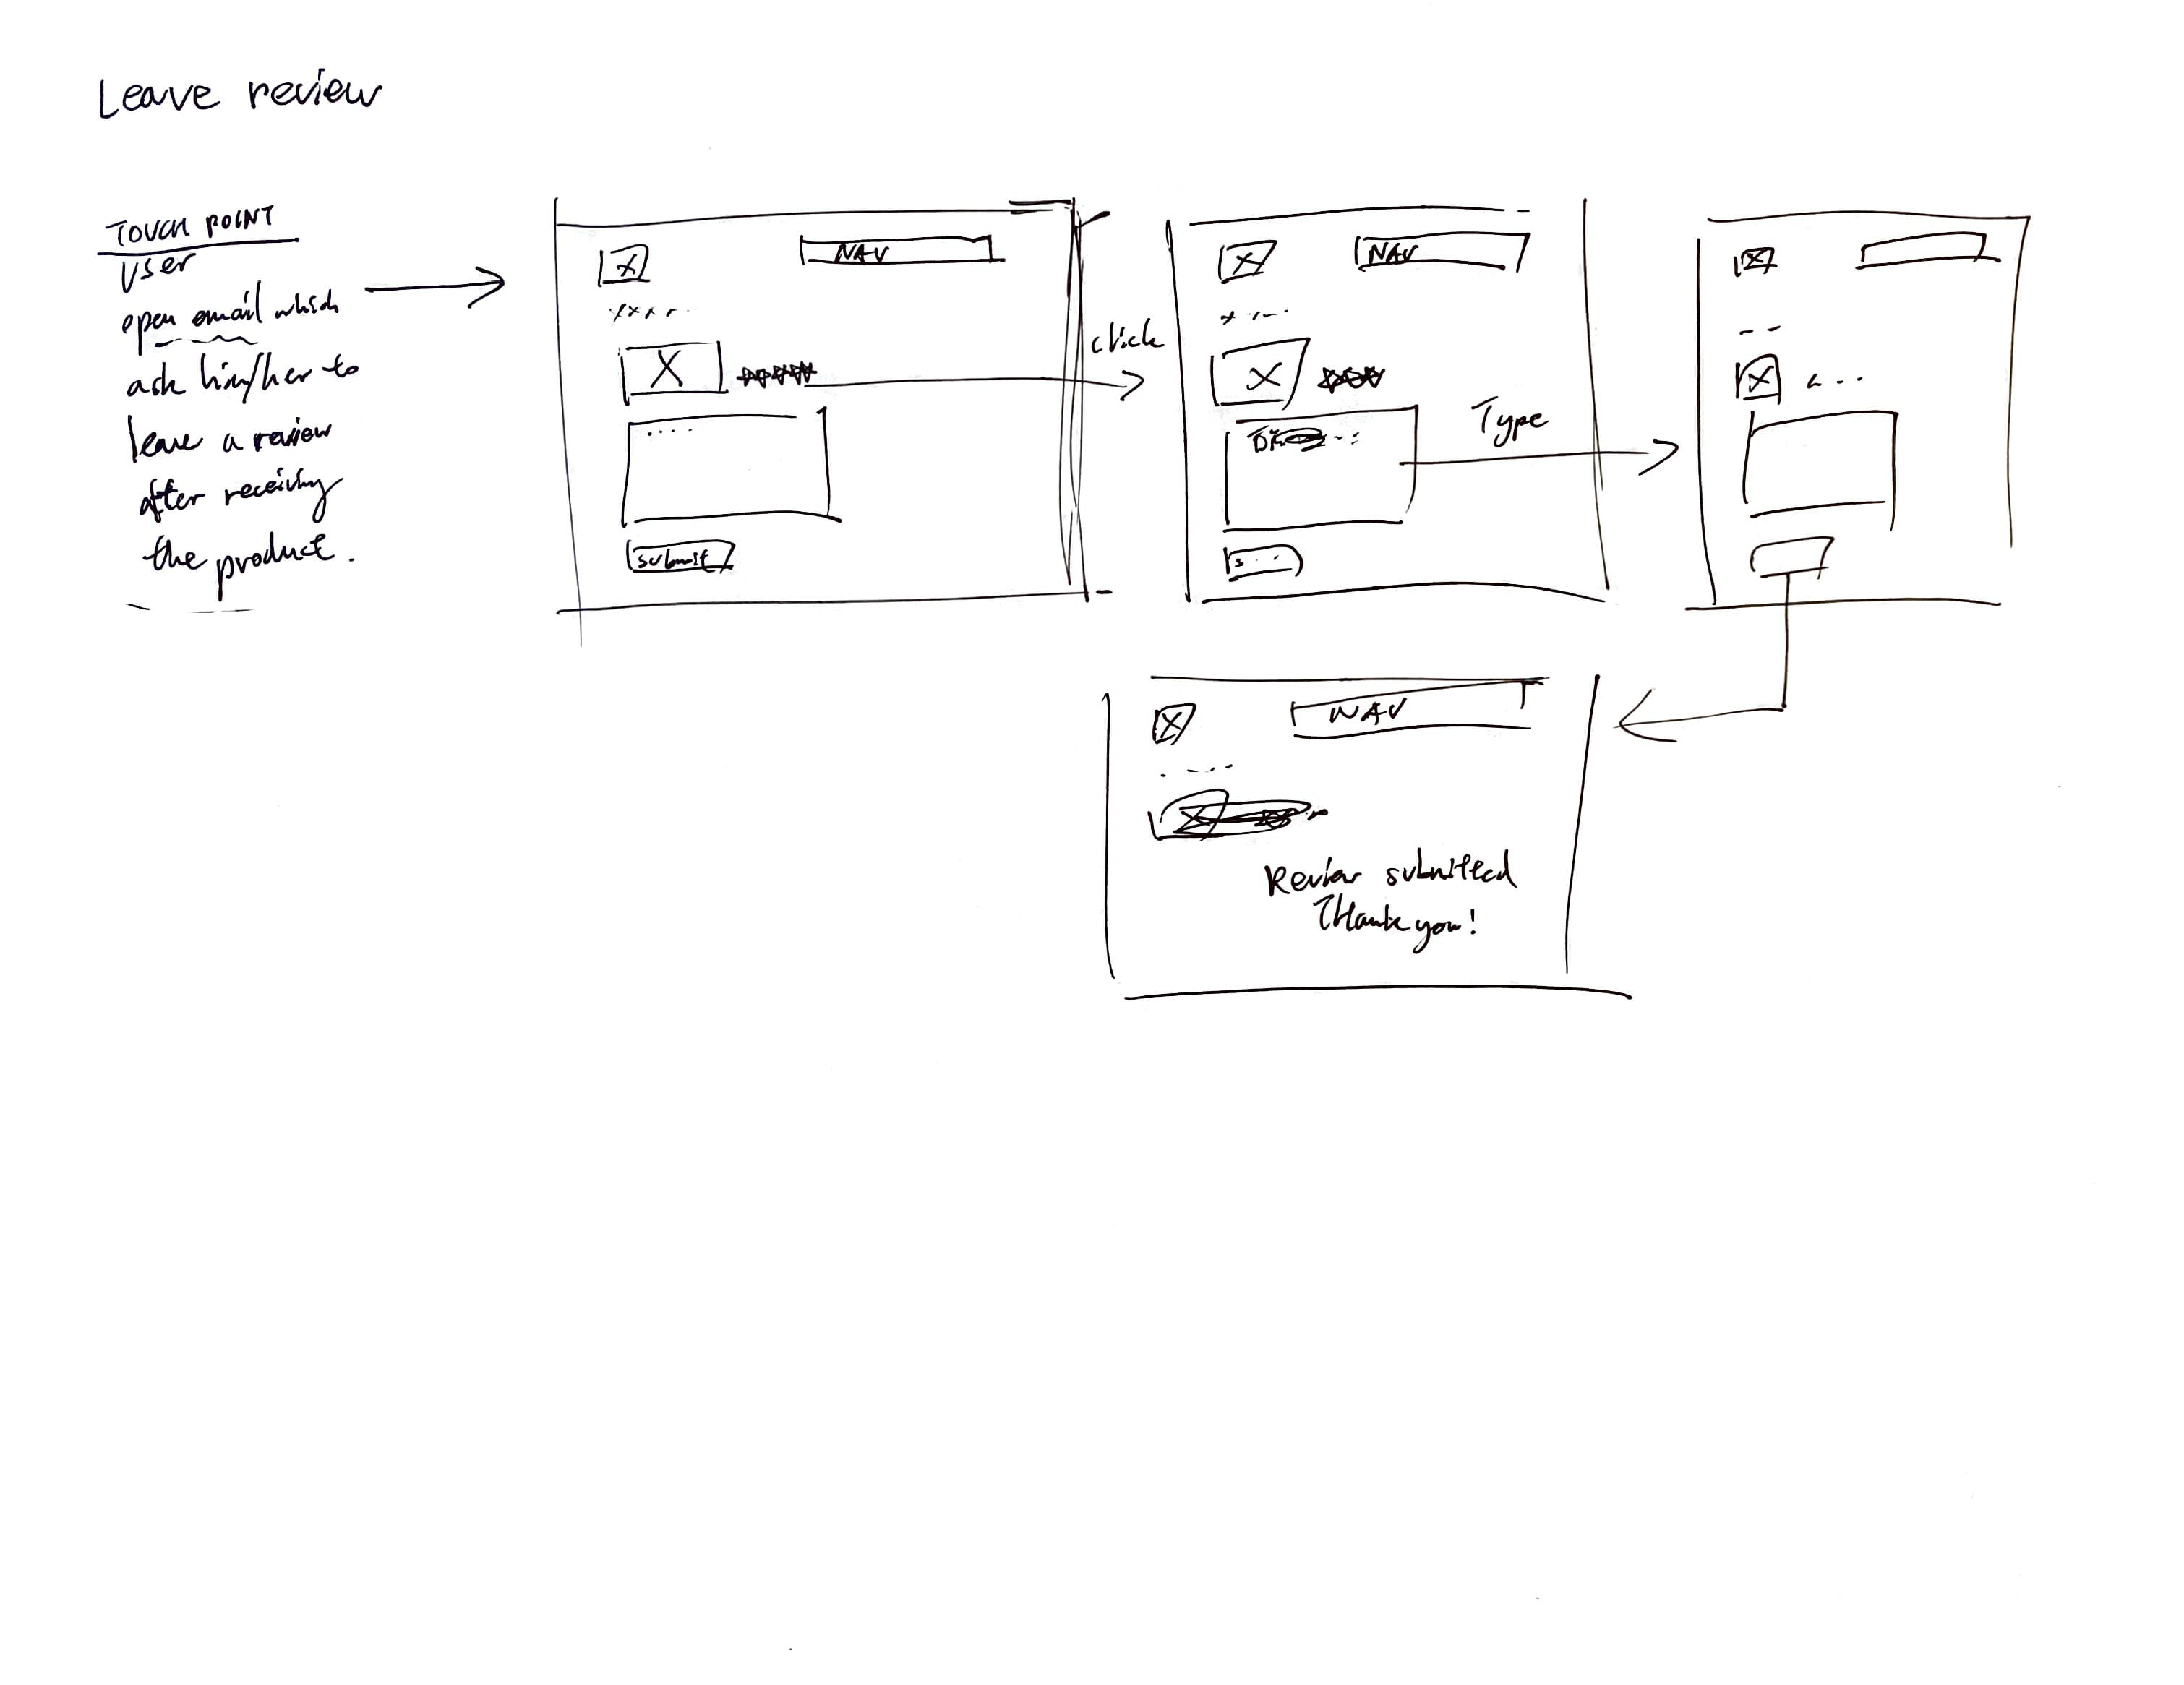 Leave review
TOUCH POINT
User
open email which
ask him/her to
leave a review
after receiving
the product.
NAV
submit
click
NAV
Type
s...
NAV
Review submitted
Thank you!